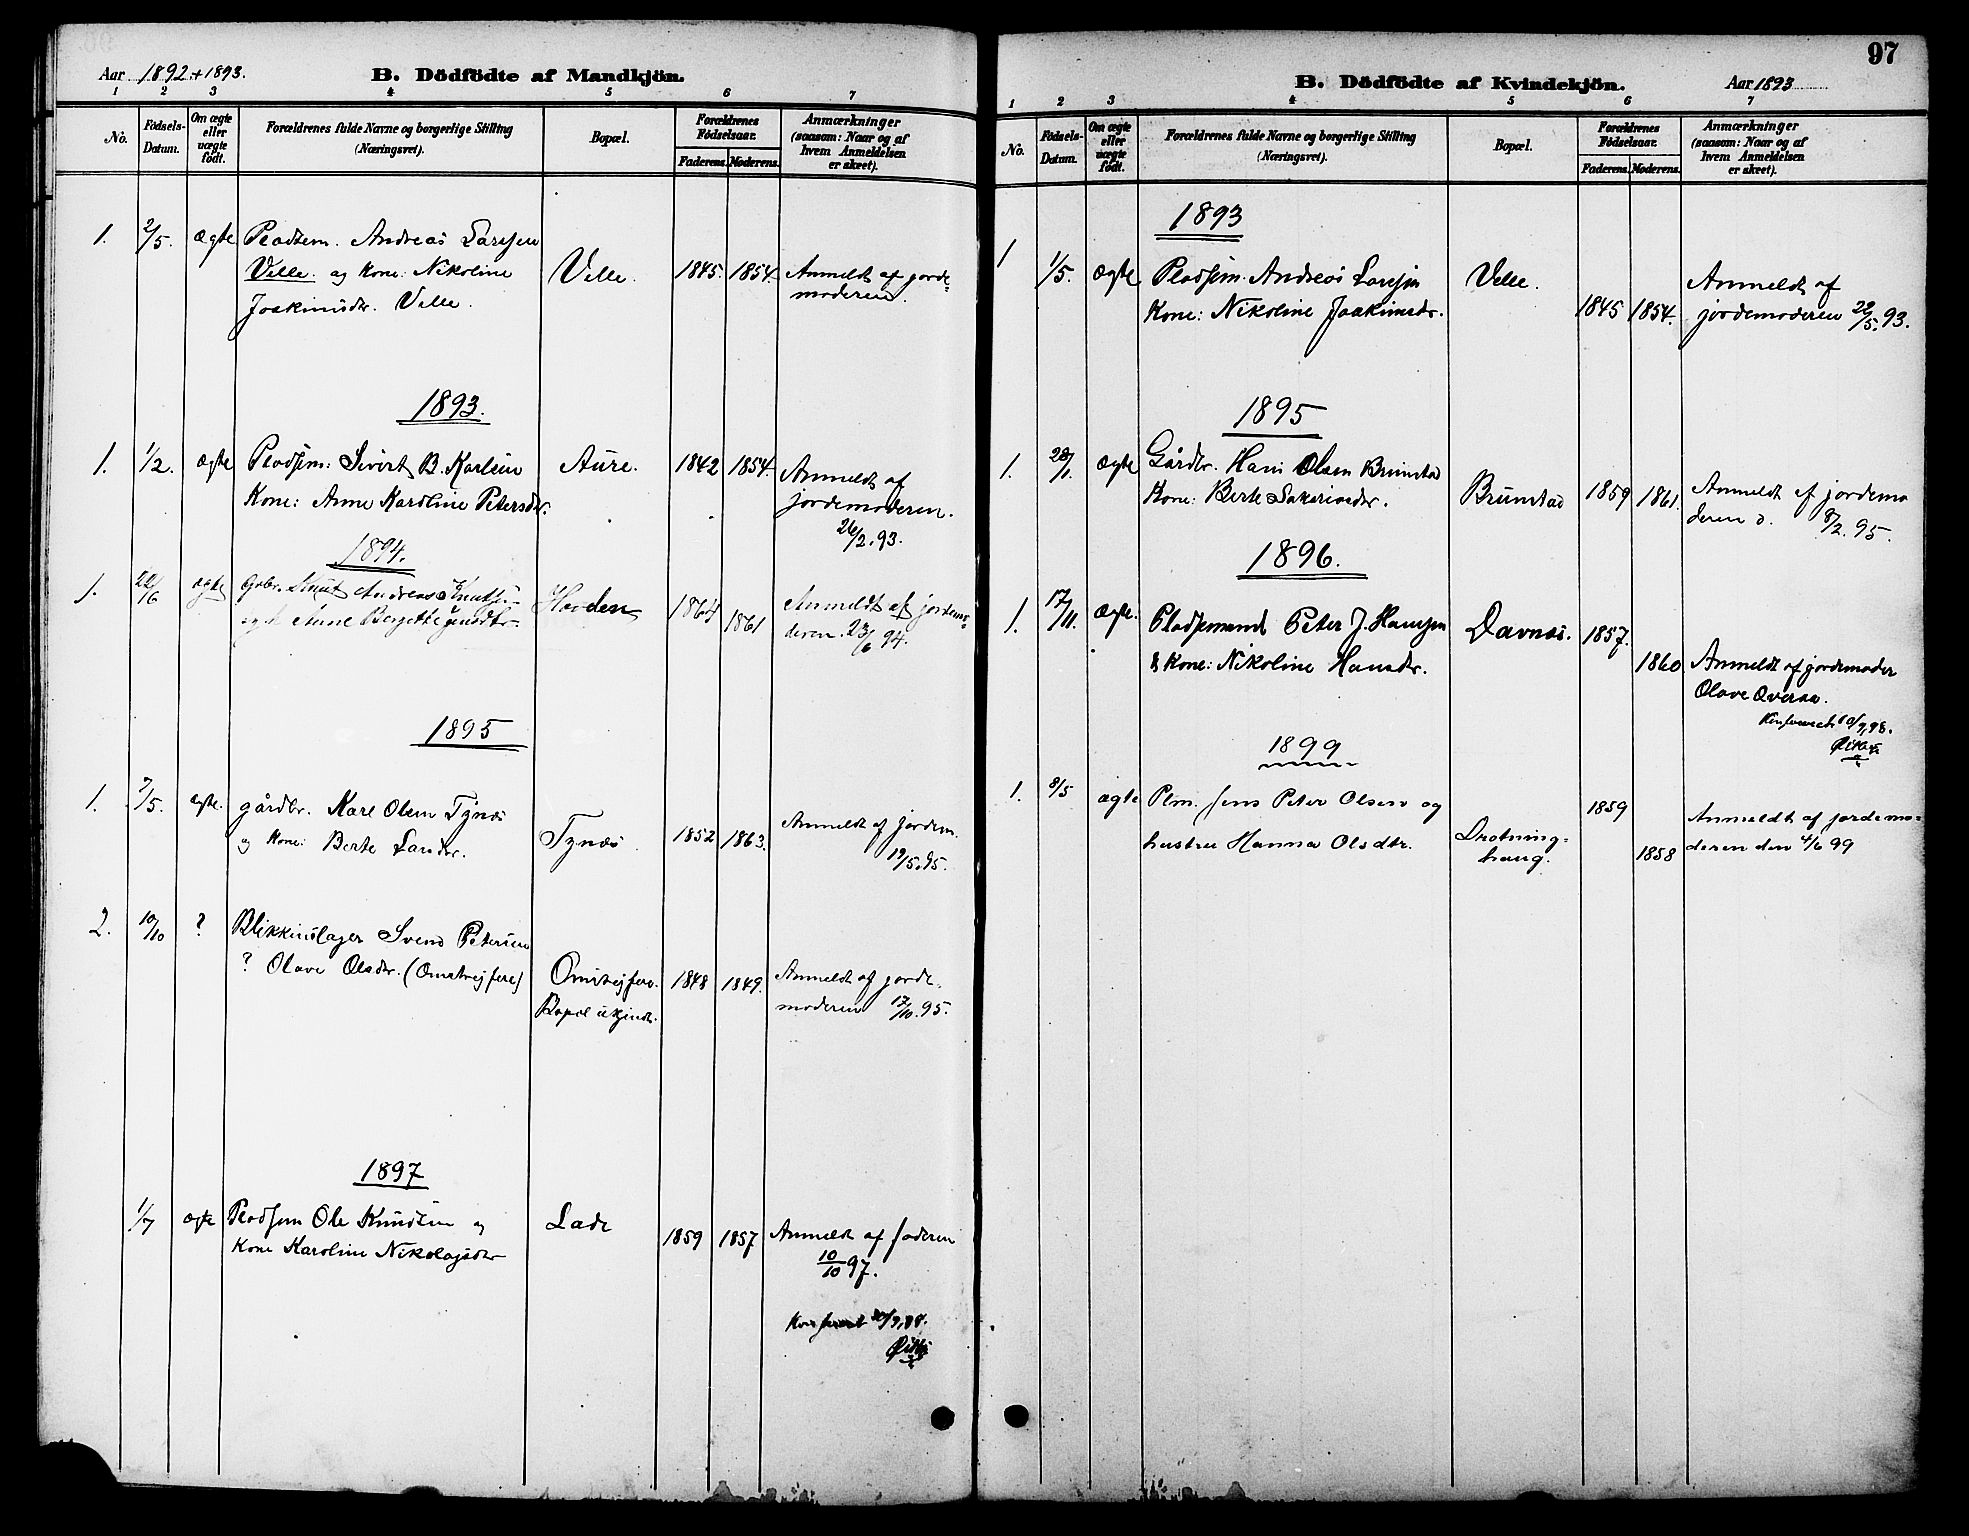 Aar 1892 + 1893.
B. Dödfödte af Mandkjön.
1 2 3 4 5 6 7
No.
Födsels-
Datum.
Om ægte
eller
uægte
født.
Forældrenes fulde Navne og borgerlige Stilling
(Næringsvei).
Bopæl.
Forældrenes
Födselsaar.
Faderens. Moderens.
Anmærkninger
(saasom: Naar og af
hvem Anmeldelsen
er skeet).
1. 2/5. ægte Pladsem. Andreas Larssen
Velle og Kone: Nikoline
Joakimsdr. Velle.
Velle. 1845. 1854. Anmeldt af jorde-
moderen.
1893.
1. 1/2. ægte Pladsem: Sivert B. Karlsen
Kone: Anne Karoline Petersdr.
Aure. 1842 1854. Anmeldt af
jordemoderen.
26/2. 93.
1894.
1. 22/6 ægte Gbr. Knut Andreas Knuts.
Anne Bergitte
1864 1861 Anmeldt af jordemo-
deren. 23/6 94.
1895
1. 7/5. ægte. gårdbr. Karl Olsen Tynæs
og Kone: Berte Larsdr.
Tynæs. 1852 1863. Anmeldt af jordem.
19/5. 95.
2. 10/10 ? Blikkenslager Svend Petersen
? Olave Olsdr. (Omstrejfere)
Omstrejfere.
Bopæl ukjendt.
1848 1849. Anmeldt af jorde-
moderen 17/10. 95.
1897
1/7 ægte Pladsem Ole Knudsen og
Kone Karoline Nikolajsdtr
Lade 1859 1857 Anmeldt af faderen
10/10 97.
97
B. Dödfödte af Kvindekjön.
Aar 1893
1 2 3 4 5 6 7
No.
Födsels-
Datum.
Om ægte
eller
uægte
født.
Forældrenes fulde Navne og borgerlige Stilling
(Næringsvei).
Bopæl.
Forældrenes
Födselsaar.
Faderens. Moderens.
Anmærkninger
(saasom: Naar og af
hvem Anmeldelsen
er skeet).
1893
1 1/5. ægte Pladsem. Andreas Larssen
Kone: Nikoline Joakimsdr.
Velle. 1845 1854. Anmeldt af
jordemoderen 22/5. 93.
1895
1. 28/1. ægte Gårdbr. Hans Olsen Brunstad
Kone: Berte Sakariasdr.
Brunstad 1859 1861. Anmeldt af jordemo
deren d. 8/2. 95.
1896.
1. 17/11. ægte. Pladsemand Peter J. Hansen
& Kone: Nikoline Hansdr.
Davnæs. 1857. 1860 Anmeldt af jordemoder
Olave Overaa.
1899
1. 8/5 ægte Plm. Jens Peter Olsen og
hustru Hanna Olsdtr.
Drotning-
haug.
1859 1858 Anmeldt af jordemo-
deren den 4/6 99